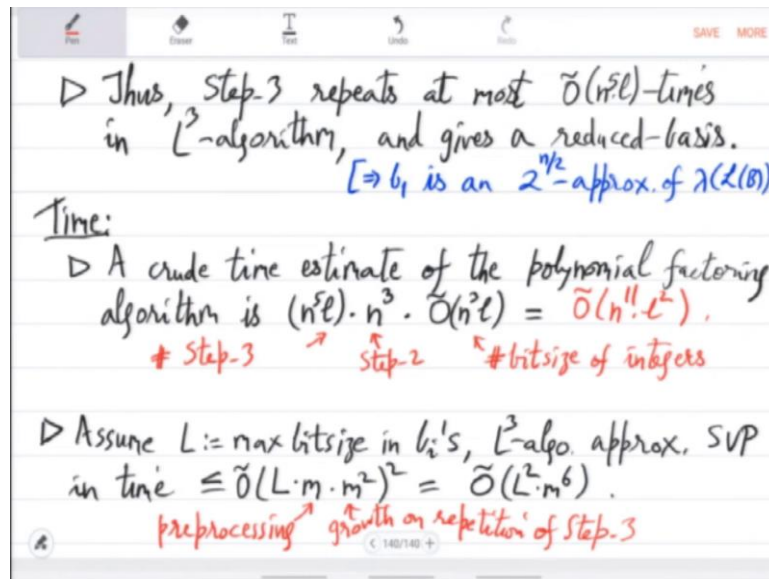 Pen Eraser Text Undo Redo SAVE MORE
▷ Thus, Step-3 repeats at most Õ(n⁵l)-times
in L³-algorithm, and gives a reduced-basis.
[⇒ b₁ is an 2^{n/2}-approx. of λ(L(B))
Time:
▷ A crude time estimate of the polynomial factoring
algorithm is (n⁵l)·n³·Õ(n³l) = Õ(n¹¹·l²).
# Step-3 ↗ ↖ Step-2 ↖ #bitsize of integers
▷ Assume L := max bitsize in bᵢ's, L³-algo. approx. SVP
in time ≤ Õ(L·m·m²)² = Õ(L²·m⁶).
preprocessing ↗ ↖ growth on repetition of Step-3
< 140/140 +